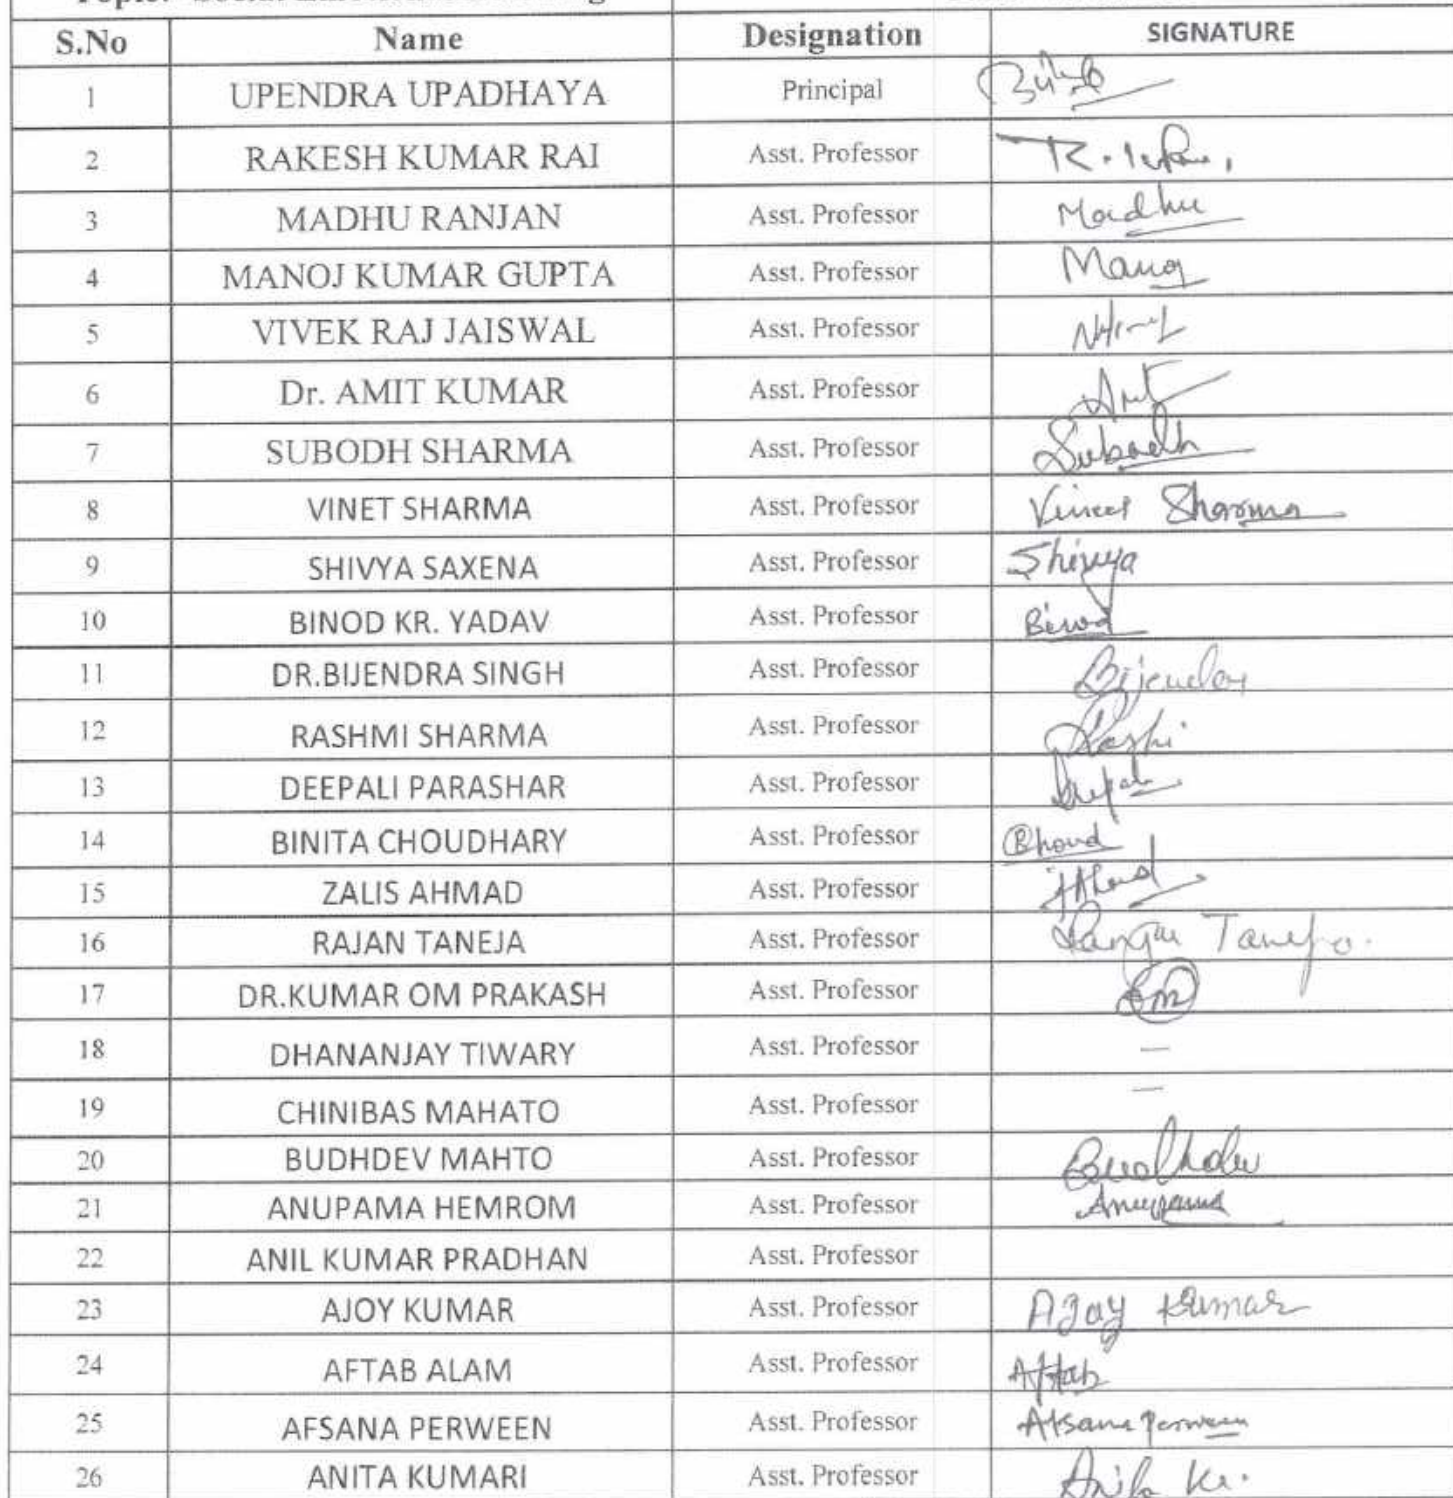 S.No Name Designation SIGNATURE
1 UPENDRA UPADHAYA Principal
2 RAKESH KUMAR RAI Asst. Professor
3 MADHU RANJAN Asst. Professor Madhu
4 MANOJ KUMAR GUPTA Asst. Professor Manoj
5 VIVEK RAJ JAISWAL Asst. Professor
6 Dr. AMIT KUMAR Asst. Professor Amit
7 SUBODH SHARMA Asst. Professor Subodh
8 VINET SHARMA Asst. Professor Vineet Sharma
9 SHIVYA SAXENA Asst. Professor Shivya
10 BINOD KR. YADAV Asst. Professor Binod
11 DR.BIJENDRA SINGH Asst. Professor
12 RASHMI SHARMA Asst. Professor
13 DEEPALI PARASHAR Asst. Professor
14 BINITA CHOUDHARY Asst. Professor
15 ZALIS AHMAD Asst. Professor
16 RAJAN TANEJA Asst. Professor Taneja
17 DR.KUMAR OM PRAKASH Asst. Professor
18 DHANANJAY TIWARY Asst. Professor —
19 CHINIBAS MAHATO Asst. Professor —
20 BUDHDEV MAHTO Asst. Professor
21 ANUPAMA HEMROM Asst. Professor Anupama
22 ANIL KUMAR PRADHAN Asst. Professor
23 AJOY KUMAR Asst. Professor Ajay Kumar
24 AFTAB ALAM Asst. Professor Aftab
25 AFSANA PERWEEN Asst. Professor Afsana Perween
26 ANITA KUMARI Asst. Professor Anita Ku.